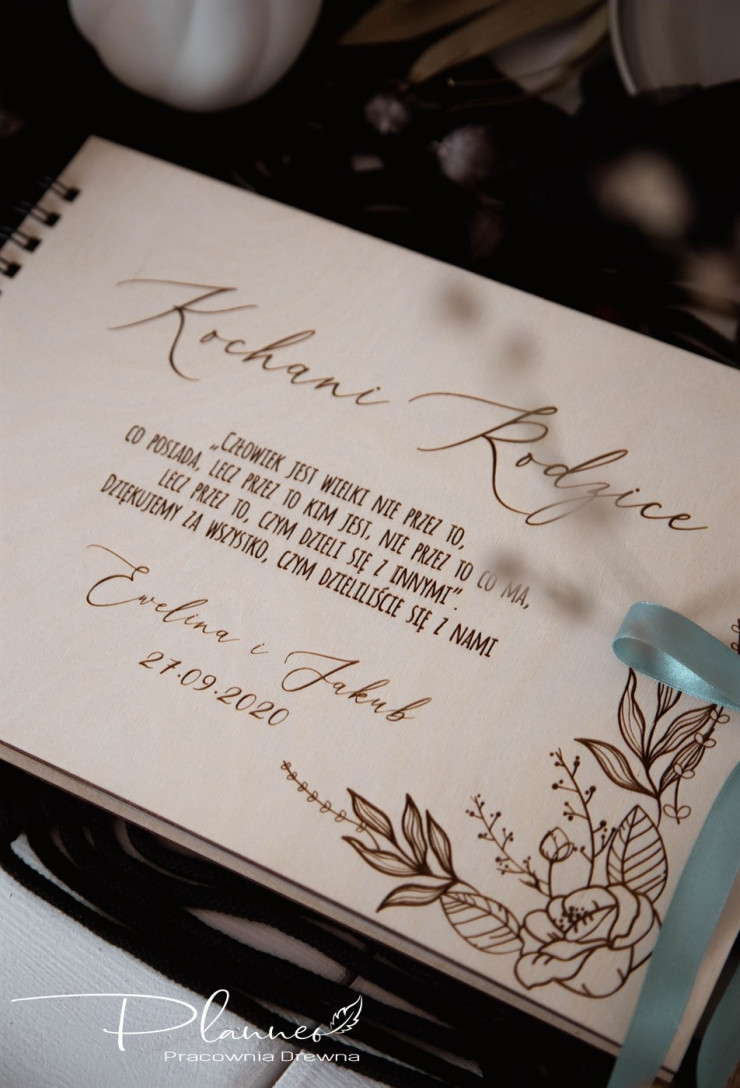 Kochani Rodzice
„CZŁOWIEK JEST WIELKI NIE PRZEZ TO,
CO POSIADA, LECZ PRZEZ TO KIM JEST, NIE PRZEZ TO CO MA,
LECZ PRZEZ TO, CZYM DZIELI SIĘ Z INNYMI”.
DZIĘKUJEMY ZA WSZYSTKO, CZYM DZIELILIŚCIE SIĘ Z NAMI
Ewelina i Jakub
27.09.2020
Planneo
Pracownia Drewna